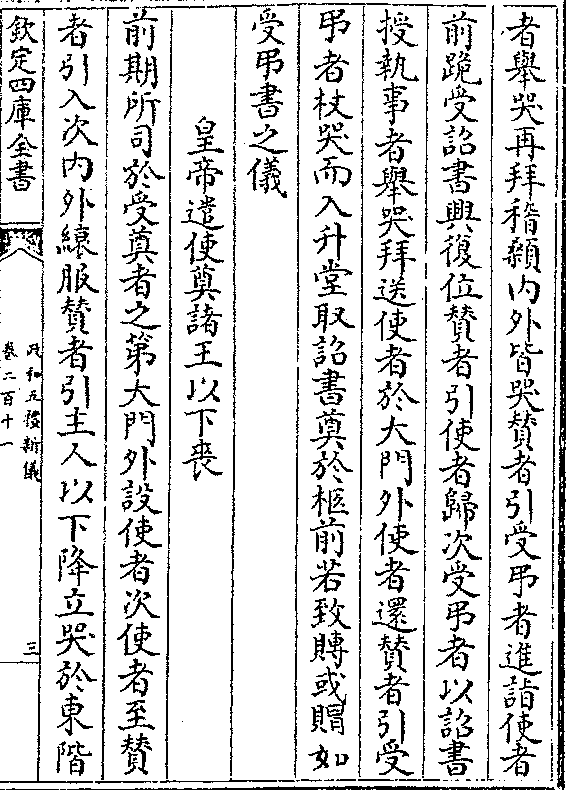 者舉哭再拜稽顙内外皆哭贊者引受弔者進詣使者
前跪受詔書興復位贊者引使者歸次受弔者以詔書
授執事者舉哭拜送使者於大門外使者還贊者引受
弔者杖哭而入升堂取詔書奠於柩前若致賻或賵如
受弔書之儀
皇帝遣使奠諸王以下喪
前期所司於受奠者之第大門外設使者次使者至贊
者引入次内外縗服贊者引主人以下降立哭於東階
欽定四庫全書
政和五禮新儀
卷二百十一
三